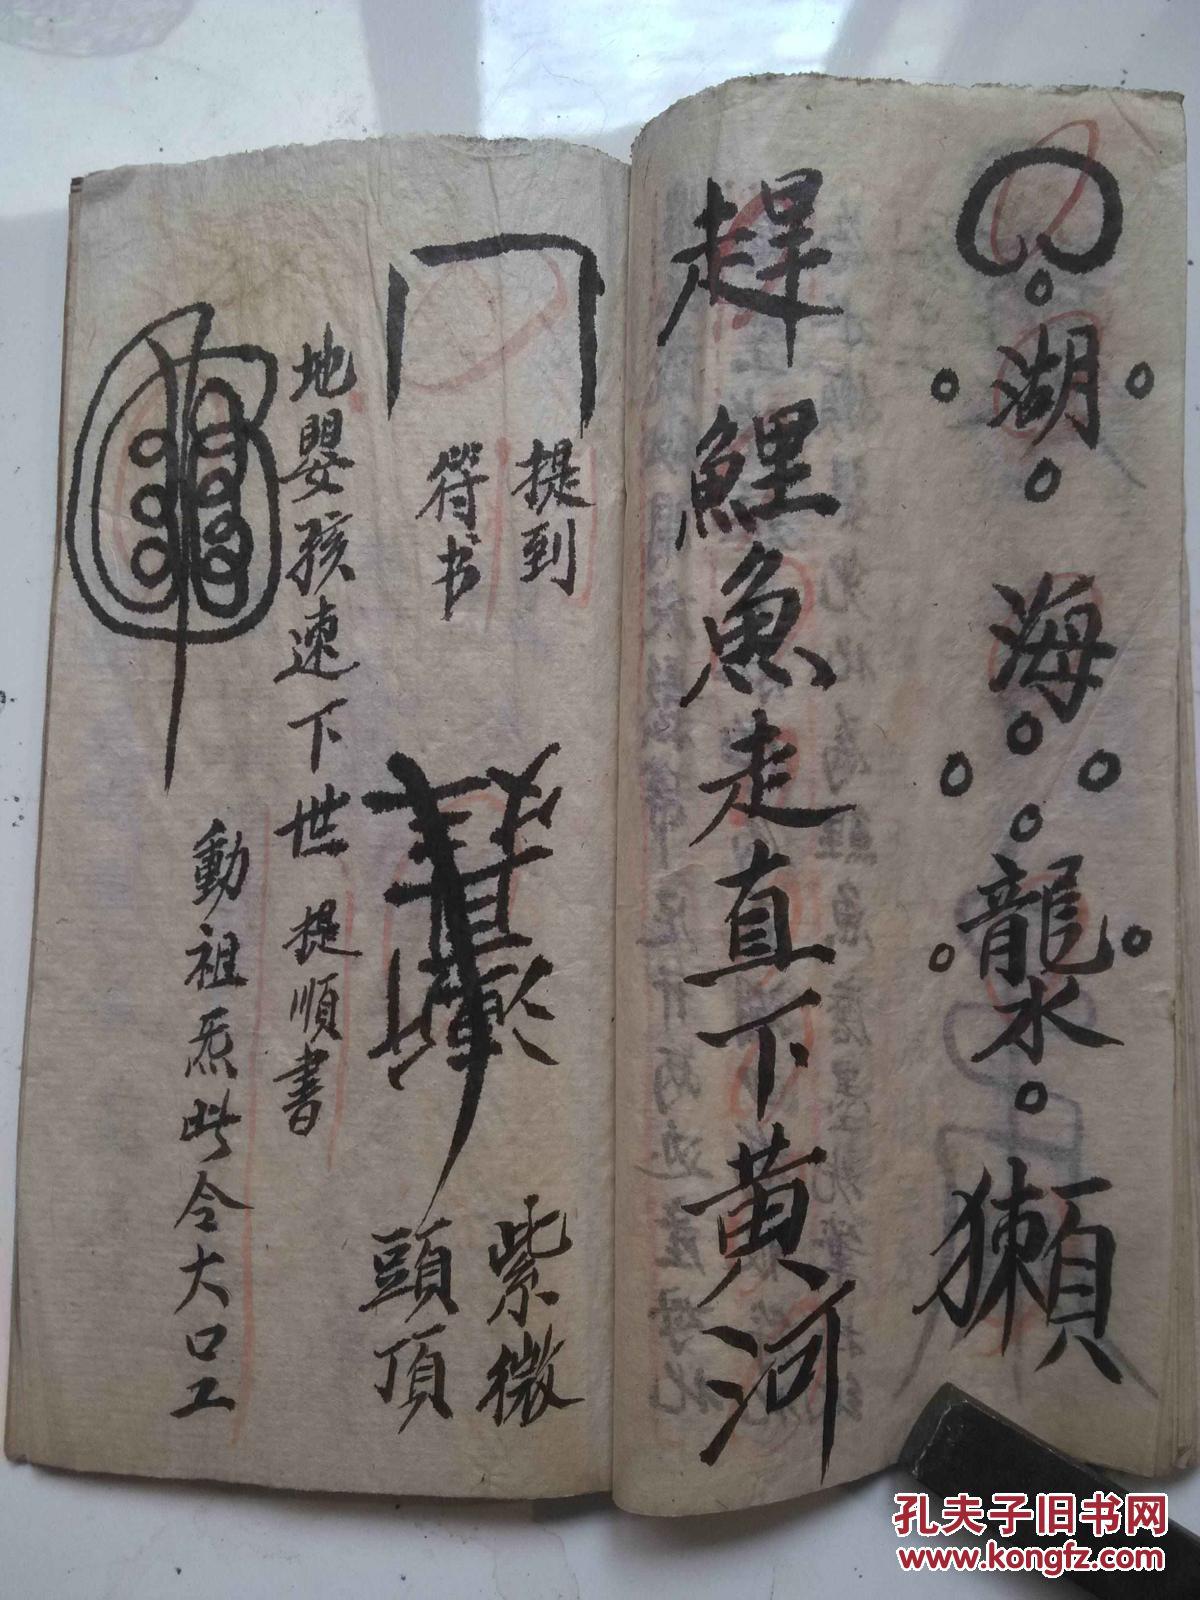 湖
海
龍
水
獺
趕鯉魚走直下黄河
提到
符书
紫微
頭頂
地嬰孩速下世提順書
動祖炁此令大口工
孔夫子旧书网
www.kongfz.com